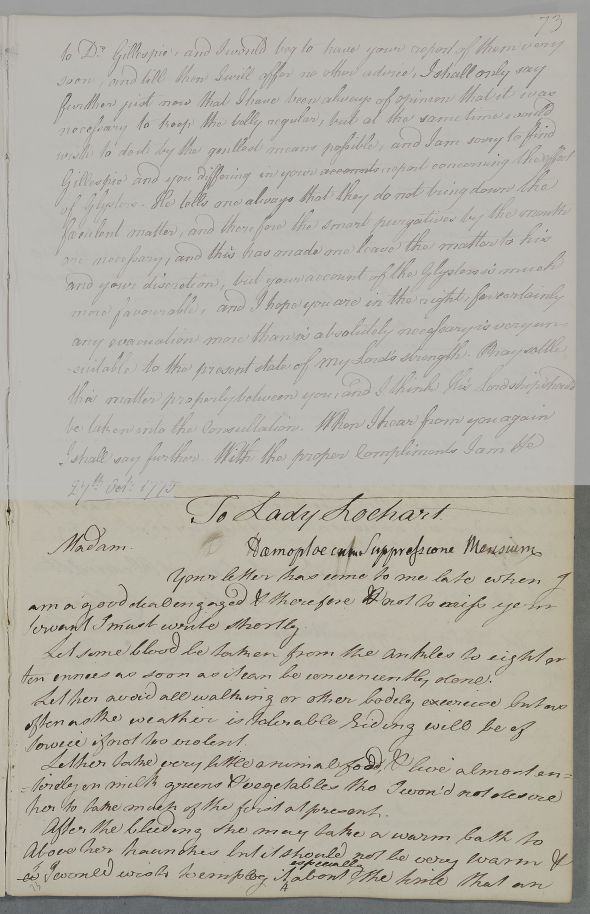 73
to Dr. Gillespie, and I would beg to have your report of them very
soon, and till then I will offer no other advice, I shall only say
further just now that I have been always of opinion that it was
necessary to keep the belly regular, but at the same time I would
wish to do it by the gentlest means possible, and I am sorry to find
Gillespie and you differing in your accounts report concerning the effect
of Glysters. He tells me always that they do not bring down the
feculent matter, and therefore the smart purgatives by the mouth
are necessary, and this has made me leave the matter to his
and your discretion, but your account of the Glysters is much
more favourable, and I hope you are in the right, for certainly
any evacuation more than is absolutely necessary is very un-
-suitable to the present state of my Lord's strength. Pray settle
this matter properly between you, and I think his Lordship should
be taken into the Consultation. When I hear from you again
I shall say further. With the proper Compliments I am &c
27th Octr. 1775
To Lady Lochart
Madam. Hæmoptoe cum Suppressione Mensium
Your letter has come to me late when I
am a good deal engaged & therefore not to miss your
servant I must write shortly.
Let some blood be taken from the ankles to eight or
ten ounces as soon as it can be conveniently done.
Let her avoid all walking or other bodily exercise but as
often as the weather is tolerable Riding will be of
service if not too violent.
Let her take very little animal food, & live almost en=
=tirely on milk greens & vegetables tho I won'd not desire
her to take much of the first at present.
After the bleeding she may take a warm bath to
above her haunches but it should not be very warm &
I would wish to employ it especially about the time that an